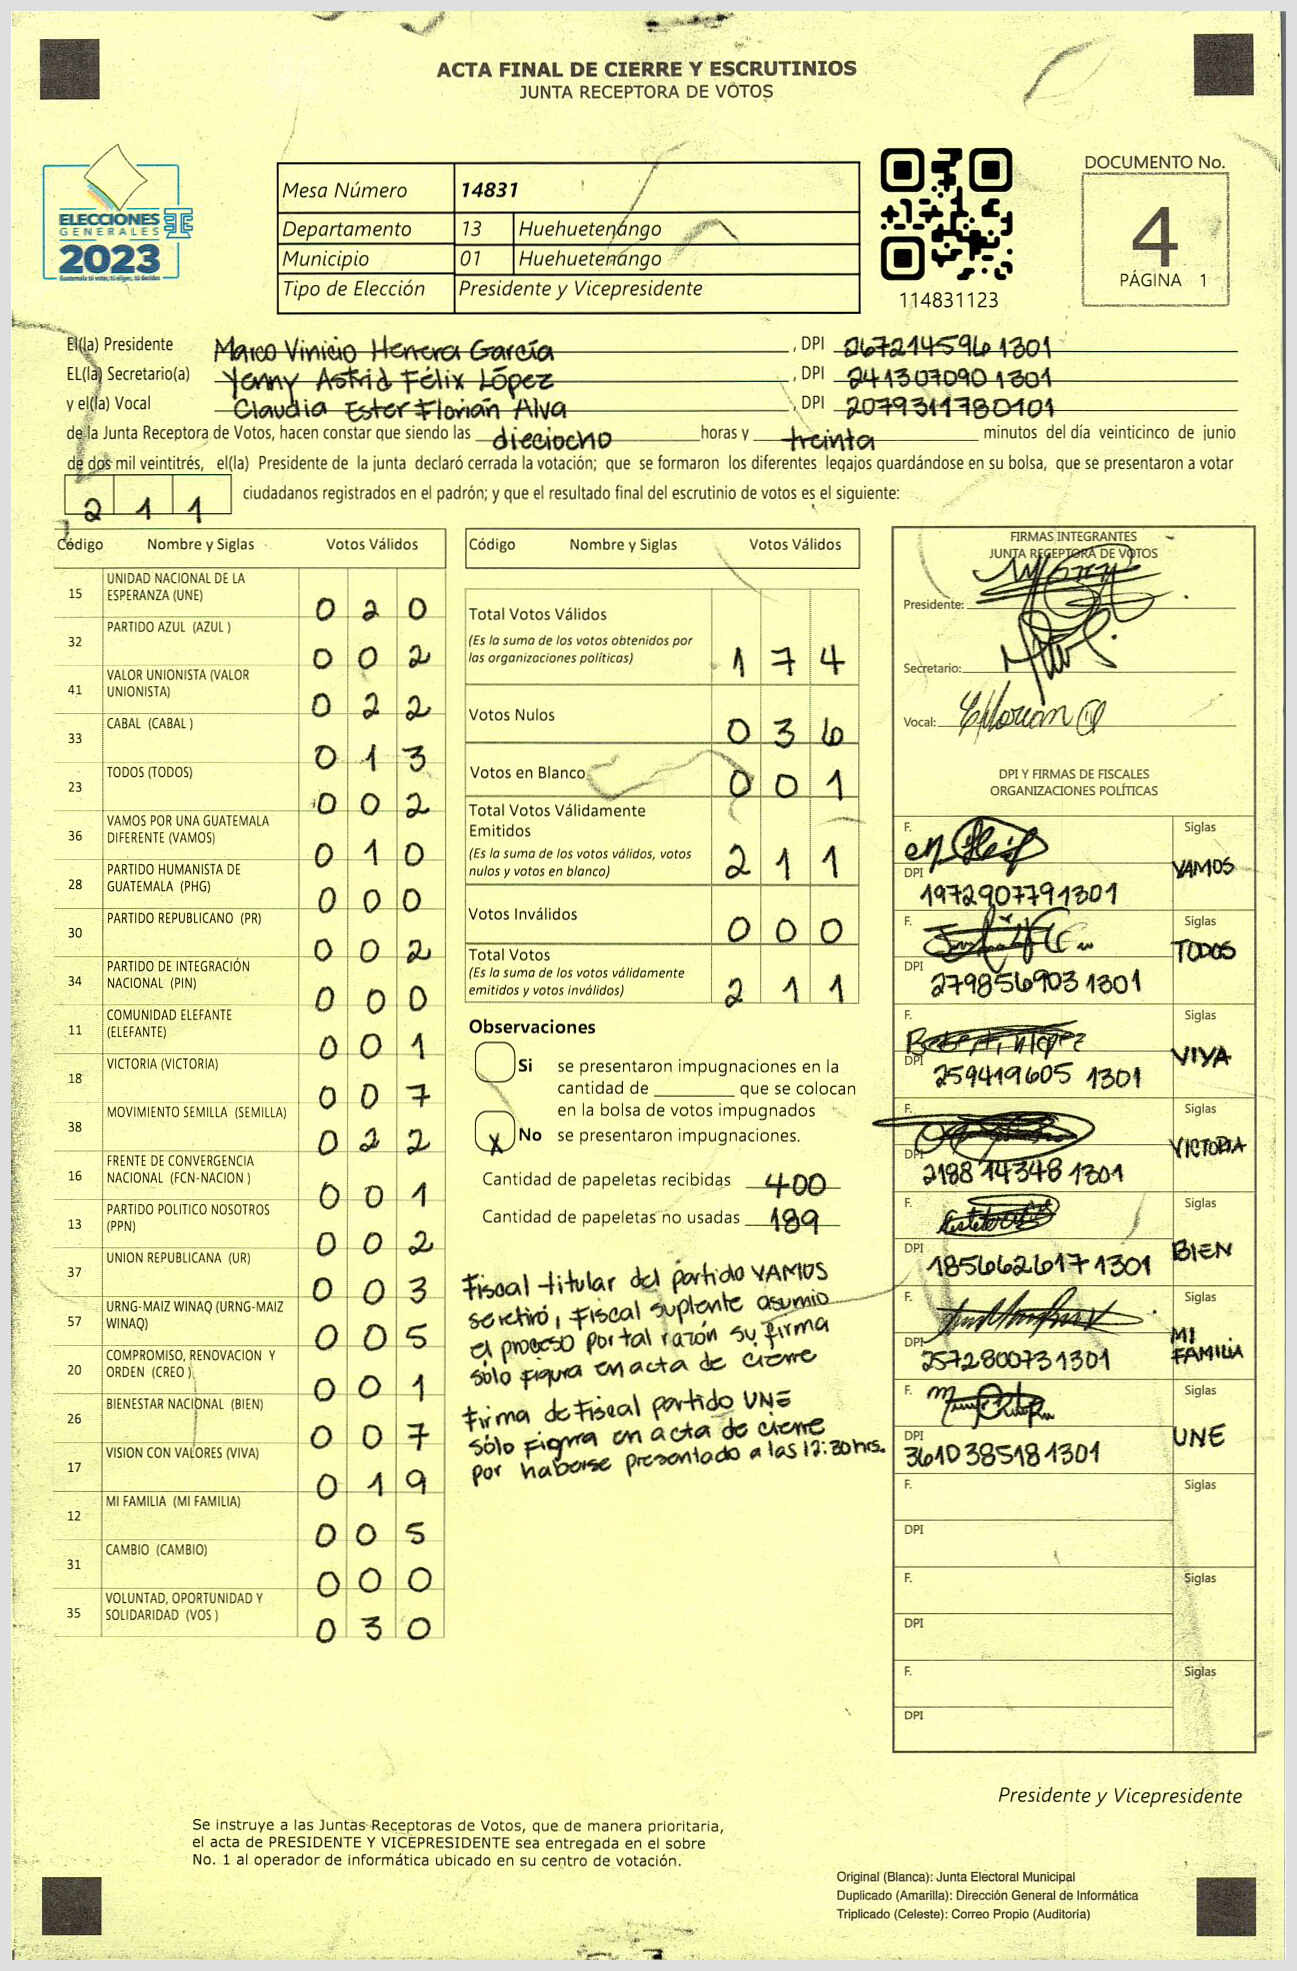 ACTA FINAL DE CIERRE Y ESCRUTINIOS
JUNTA RECEPTORA DE VOTOS
ELECCIONES
GENERALES
2023
Guatemala tú votas, tú eliges, tú decides
Mesa Número 14831
Departamento 13 Huehuetenango
Municipio 01 Huehuetenango
Tipo de Elección Presidente y Vicepresidente
114831123
DOCUMENTO No.
4
PÁGINA 1
El(la) Presidente Marco Vinicio Herrera García , DPI 2672145961301
EL(la) Secretario(a) Yenny Astrid Félix López , DPI 2413070901301
y el(la) Vocal Claudia Ester Florian Alva , DPI 2079311780101
de la Junta Receptora de Votos, hacen constar que siendo las dieciocho horas y treinta minutos del día veinticinco de junio
de dos mil veintitrés, el(la) Presidente de la junta declaró cerrada la votación; que se formaron los diferentes legajos guardándose en su bolsa, que se presentaron a votar
211 ciudadanos registrados en el padrón; y que el resultado final del escrutinio de votos es el siguiente:
Código Nombre y Siglas Votos Válidos
15 UNIDAD NACIONAL DE LA ESPERANZA (UNE) 020
32 PARTIDO AZUL (AZUL ) 002
41 VALOR UNIONISTA (VALOR UNIONISTA) 022
33 CABAL (CABAL ) 013
23 TODOS (TODOS) 002
36 VAMOS POR UNA GUATEMALA DIFERENTE (VAMOS) 010
28 PARTIDO HUMANISTA DE GUATEMALA (PHG) 000
30 PARTIDO REPUBLICANO (PR) 002
34 PARTIDO DE INTEGRACIÓN NACIONAL (PIN) 000
11 COMUNIDAD ELEFANTE (ELEFANTE) 001
18 VICTORIA (VICTORIA) 007
38 MOVIMIENTO SEMILLA (SEMILLA) 022
16 FRENTE DE CONVERGENCIA NACIONAL (FCN-NACION ) 001
13 PARTIDO POLITICO NOSOTROS (PPN) 002
37 UNION REPUBLICANA (UR) 003
57 URNG-MAIZ WINAQ (URNG-MAIZ WINAQ) 005
20 COMPROMISO, RENOVACION Y ORDEN (CREO ) 001
26 BIENESTAR NACIONAL (BIEN) 007
17 VISION CON VALORES (VIVA) 019
12 MI FAMILIA (MI FAMILIA) 005
31 CAMBIO (CAMBIO) 000
35 VOLUNTAD, OPORTUNIDAD Y SOLIDARIDAD (VOS ) 030
Código Nombre y Siglas Votos Válidos
Total Votos Válidos
(Es la suma de los votos obtenidos por
las organizaciones políticas) 174
Votos Nulos 036
Votos en Blanco 001
Total Votos Válidamente
Emitidos
(Es la suma de los votos válidos, votos
nulos y votos en blanco) 211
Votos Inválidos 000
Total Votos
(Es la suma de los votos válidamente
emitidos y votos inválidos) 211
Observaciones
Si se presentaron impugnaciones en la
cantidad de ________ que se colocan
en la bolsa de votos impugnados
X No se presentaron impugnaciones.
Cantidad de papeletas recibidas 400
Cantidad de papeletas no usadas 189
Fiscal titular del partido VAMOS
se retiró, Fiscal suplente asumio
el proceso por tal razón su firma
sólo figura en acta de cierre
Firma de Fiscal partido UNE
sólo figura en acta de cierre
por haberse presentado a las 12:30 hrs.
FIRMAS INTEGRANTES
JUNTA RECEPTORA DE VOTOS
Presidente:
Secretario:
Vocal:
DPI Y FIRMAS DE FISCALES
ORGANIZACIONES POLÍTICAS
F. Siglas
VAMOS
DPI 1972907791301
F. Siglas
TODOS
DPI 2798569031301
F. Siglas
VIVA
DPI 259419605 1301
F. Siglas
VICTORIA
DPI 2188143481301
F. Siglas
BIEN
DPI 1856626171301
F. Siglas
MI FAMILIA
DPI 2572800731301
F. Siglas
UNE
DPI 3610385181301
F. Siglas
DPI
F. Siglas
DPI
F. Siglas
DPI
Presidente y Vicepresidente
Se instruye a las Juntas Receptoras de Votos, que de manera prioritaria,
el acta de PRESIDENTE Y VICEPRESIDENTE sea entregada en el sobre
No. 1 al operador de informática ubicado en su centro de votación.
Original (Blanca): Junta Electoral Municipal
Duplicado (Amarilla): Dirección General de Informática
Triplicado (Celeste): Correo Propio (Auditoría)